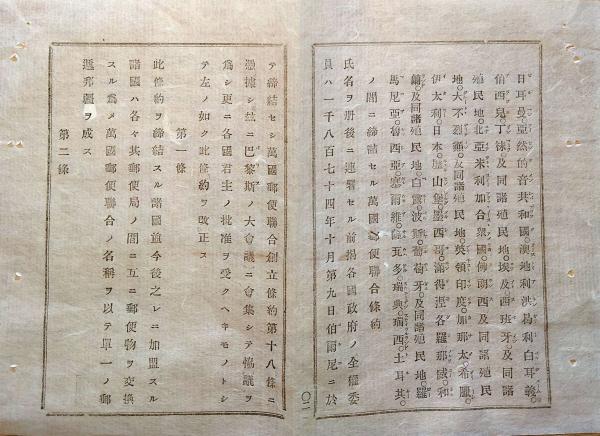 日耳曼亞然的音共和國。澳地利洪噶利白耳義。
伯西兒。丁抹及同諸殖民地。埃及西班牙及同諸
殖民地。北亞米利加合衆國。佛蘭西及同諸殖民
地。大不列顛及同諸殖民地。英領印度。加那太。希臘。
伊太利。日本。盧山堡。墨西哥。滿得涅各羅那威。和
蘭及同諸殖民地。白露。波斯。葡萄牙及同諸殖民地。羅
馬尼亞。魯西亞。塞爾維。薩瓦多。瑞典。瑞西。土耳其。
ノ間ニ締結セル萬國郵便聯合條約
氏名ヲ册後ニ連署セル前揚各國政府ノ全權委
員ハ一千八百七十四年十月第九日伯爾尼ニ於
二〇
テ締結セシ萬國郵便聯合創立條約第十八條ニ
憑據シ玆ニ巴黎斯ノ大會議ニ會集シテ協議ヲ
爲シ更ニ各國君主ノ批准ヲ受クヘキモノトシ
テ左ノ如ク此條約ヲ改正ス
第一條
此條約ヲ締結スル諸國並今後之レニ加盟スル
諸國ハ各々其郵便局ノ間ニ互ニ郵便物ヲ交換
スル爲メ萬國郵便聯合ノ名稱ヲ以テ單一ノ郵
遞邦疆ヲ成ス
第二條